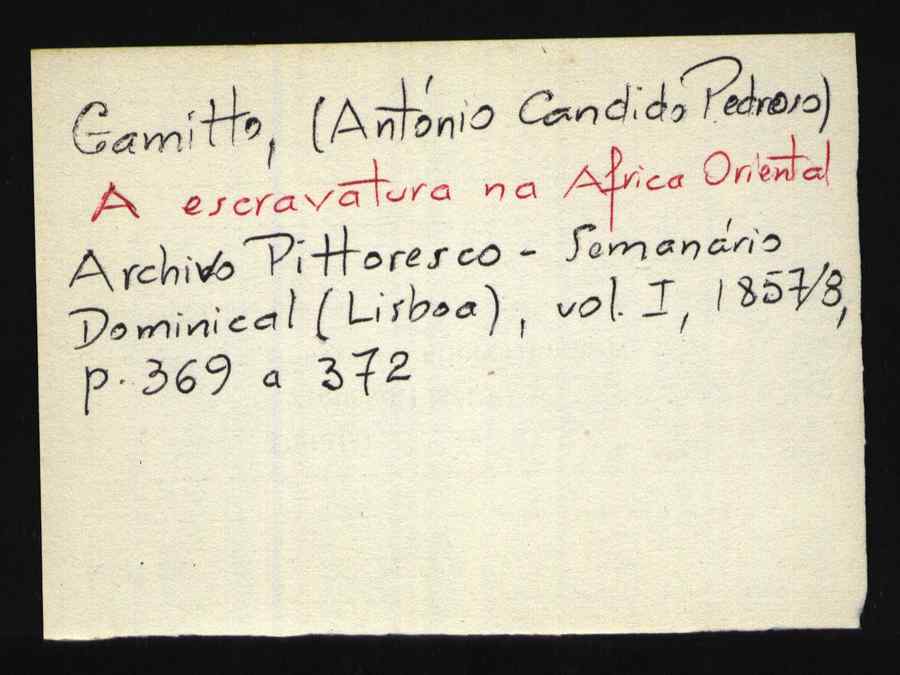 Gamitto, (António Candido Pedroso)
A escravatura na Africa Oriental
Archivo Pittoresco - Semanário
Dominical (Lisboa), vol. I, 1857/8,
p. 369 a 372